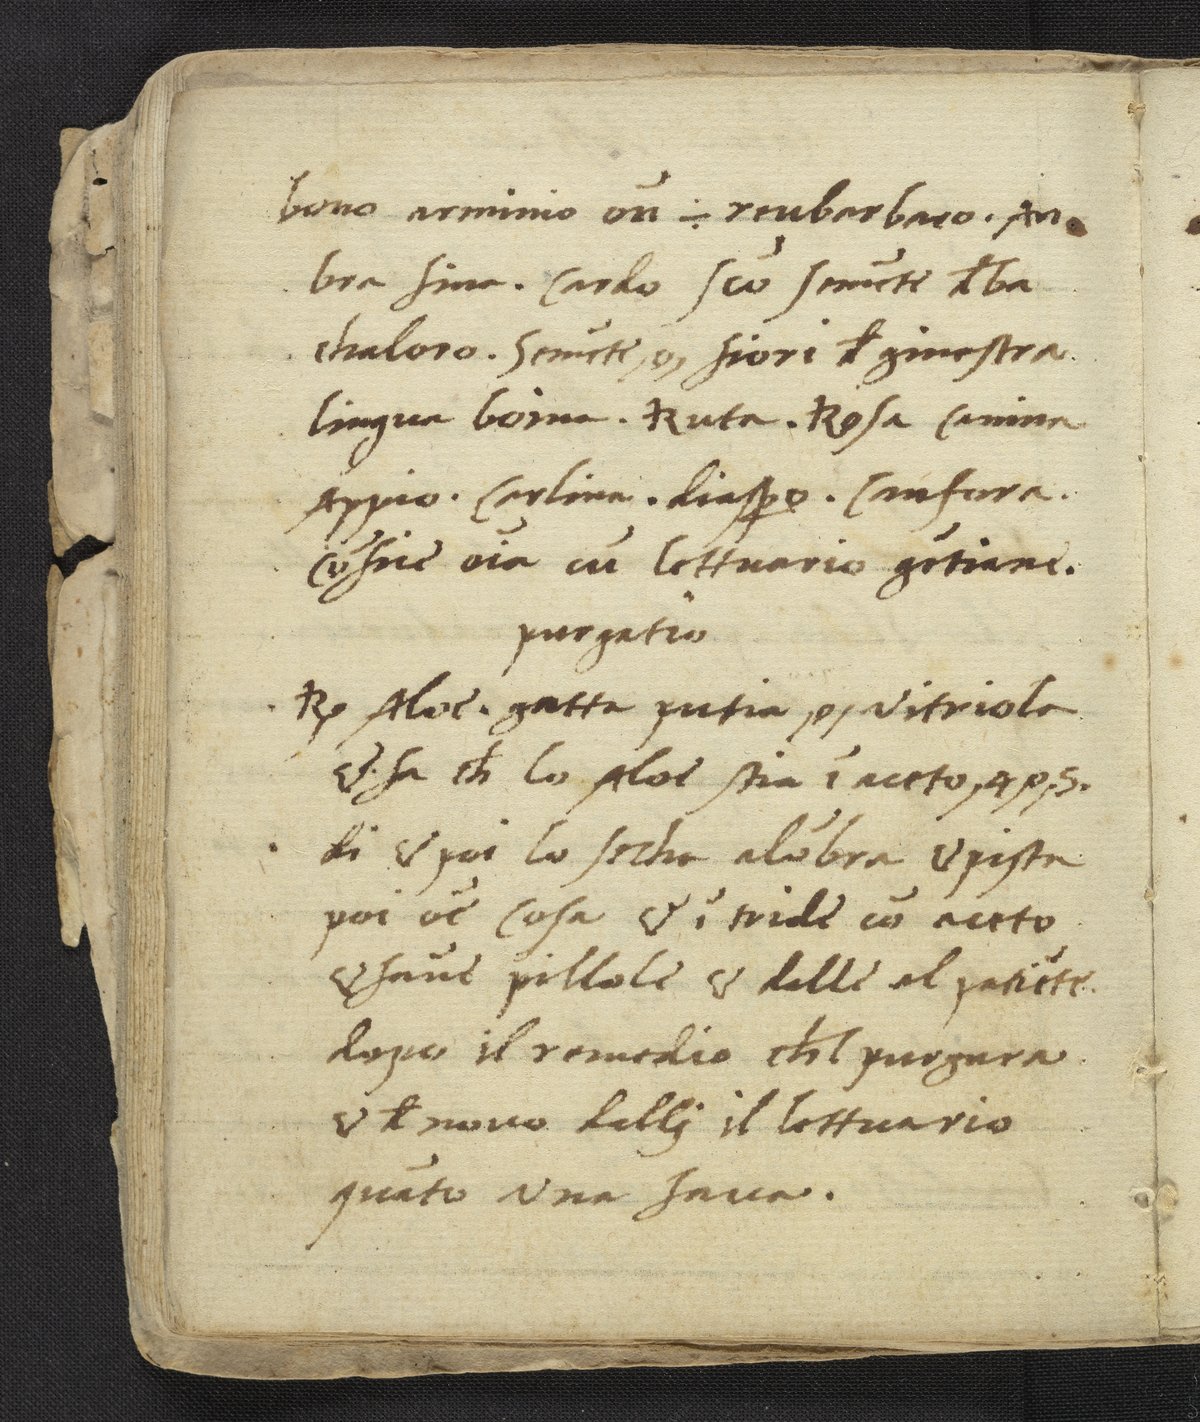 bono arminio oñ ÷ reubarbaro. Am
bra fina. Cardo scõ semẽte đ ba
chaloro. Semẽte, o, fiori đ ginestra
lingua boina. Ruta. Rosa Canina
Appio. Carlina. diaspo. Canfora.
cõfice oĩa cũ lettuario gẽtiane.
purgatio
Rp Aloe. gatta putia, o, vitriola
& fa ch̃ lo Aloe stia ĩ aceto, 4, o, 5.
di & poi lo secha alõbra & pista
poi oẽ cosa & ĩtride cõ aceto
& fanne pillole & dalle al patiẽte
dopo il remedio ch̃l purgara
& đ novo dallj il lettuario
quãto una fava.